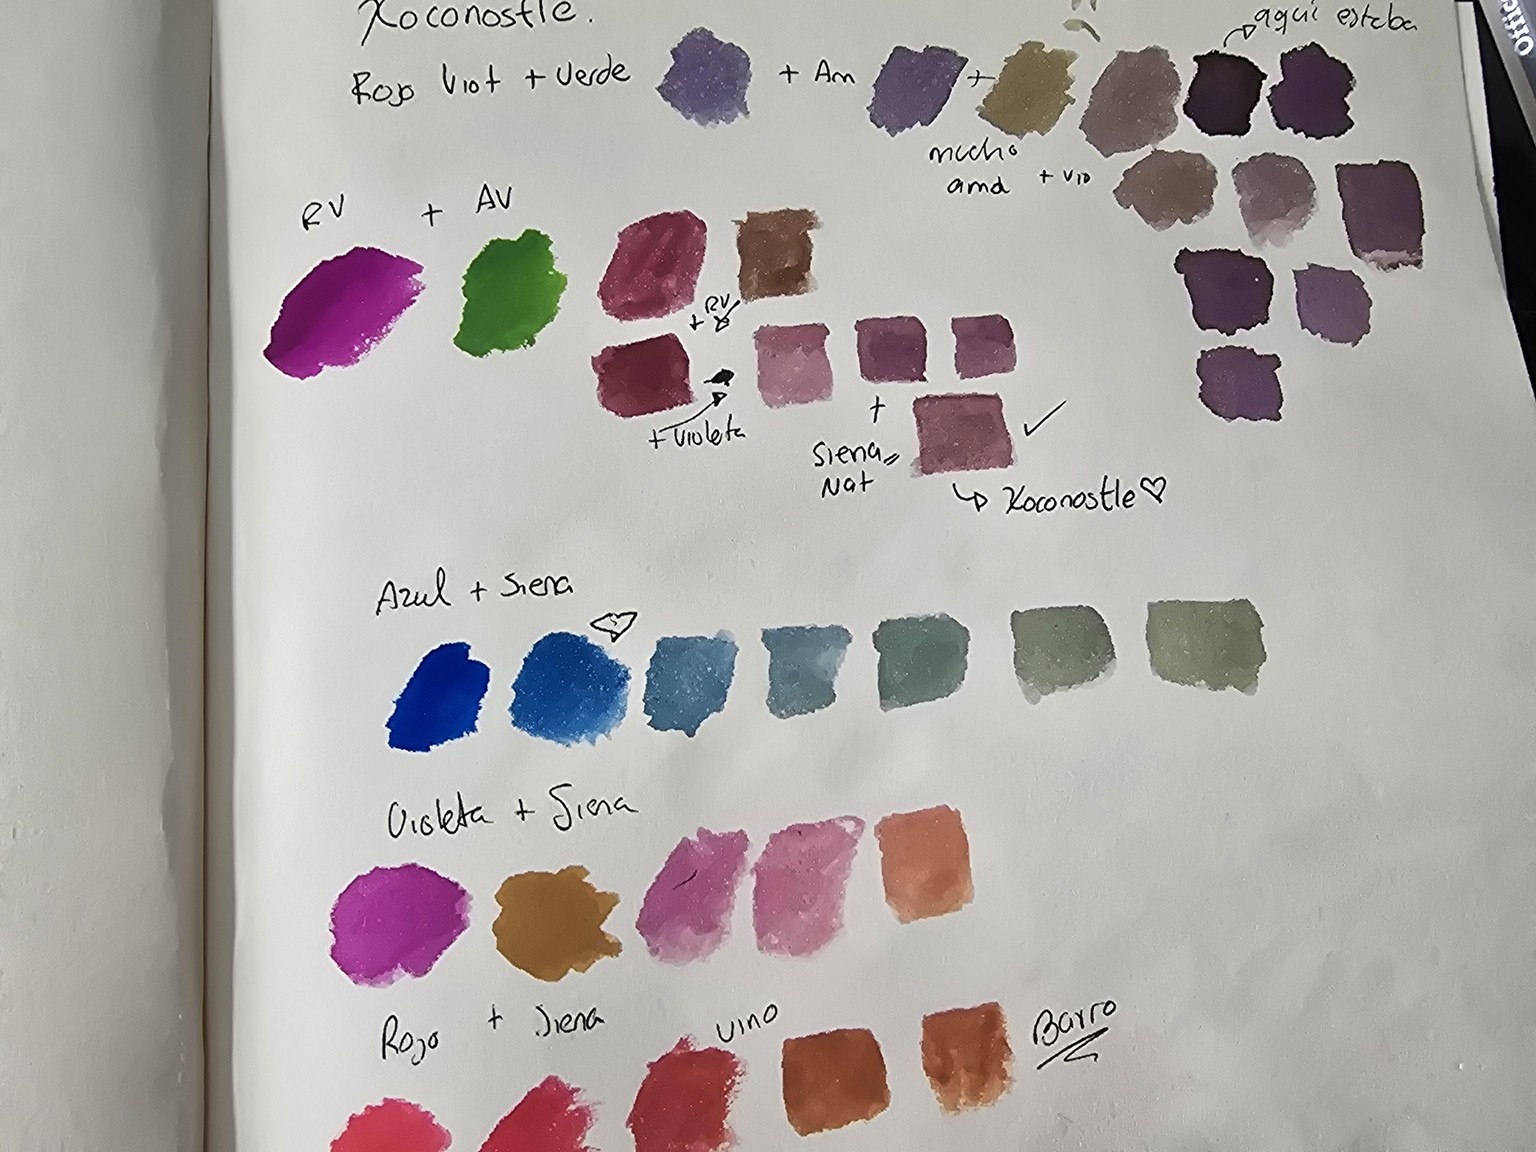 Xoconostle.
aquí estaba
Rojo Viot + Verde + Am +
mucho
ama + Vio
RV + AV
+ RV
+ Violeta
+
Siena
Nat
Xoconostle
Azul + Siena
Violeta + Siena
Rojo + Siena
Vino
Barro
Offic